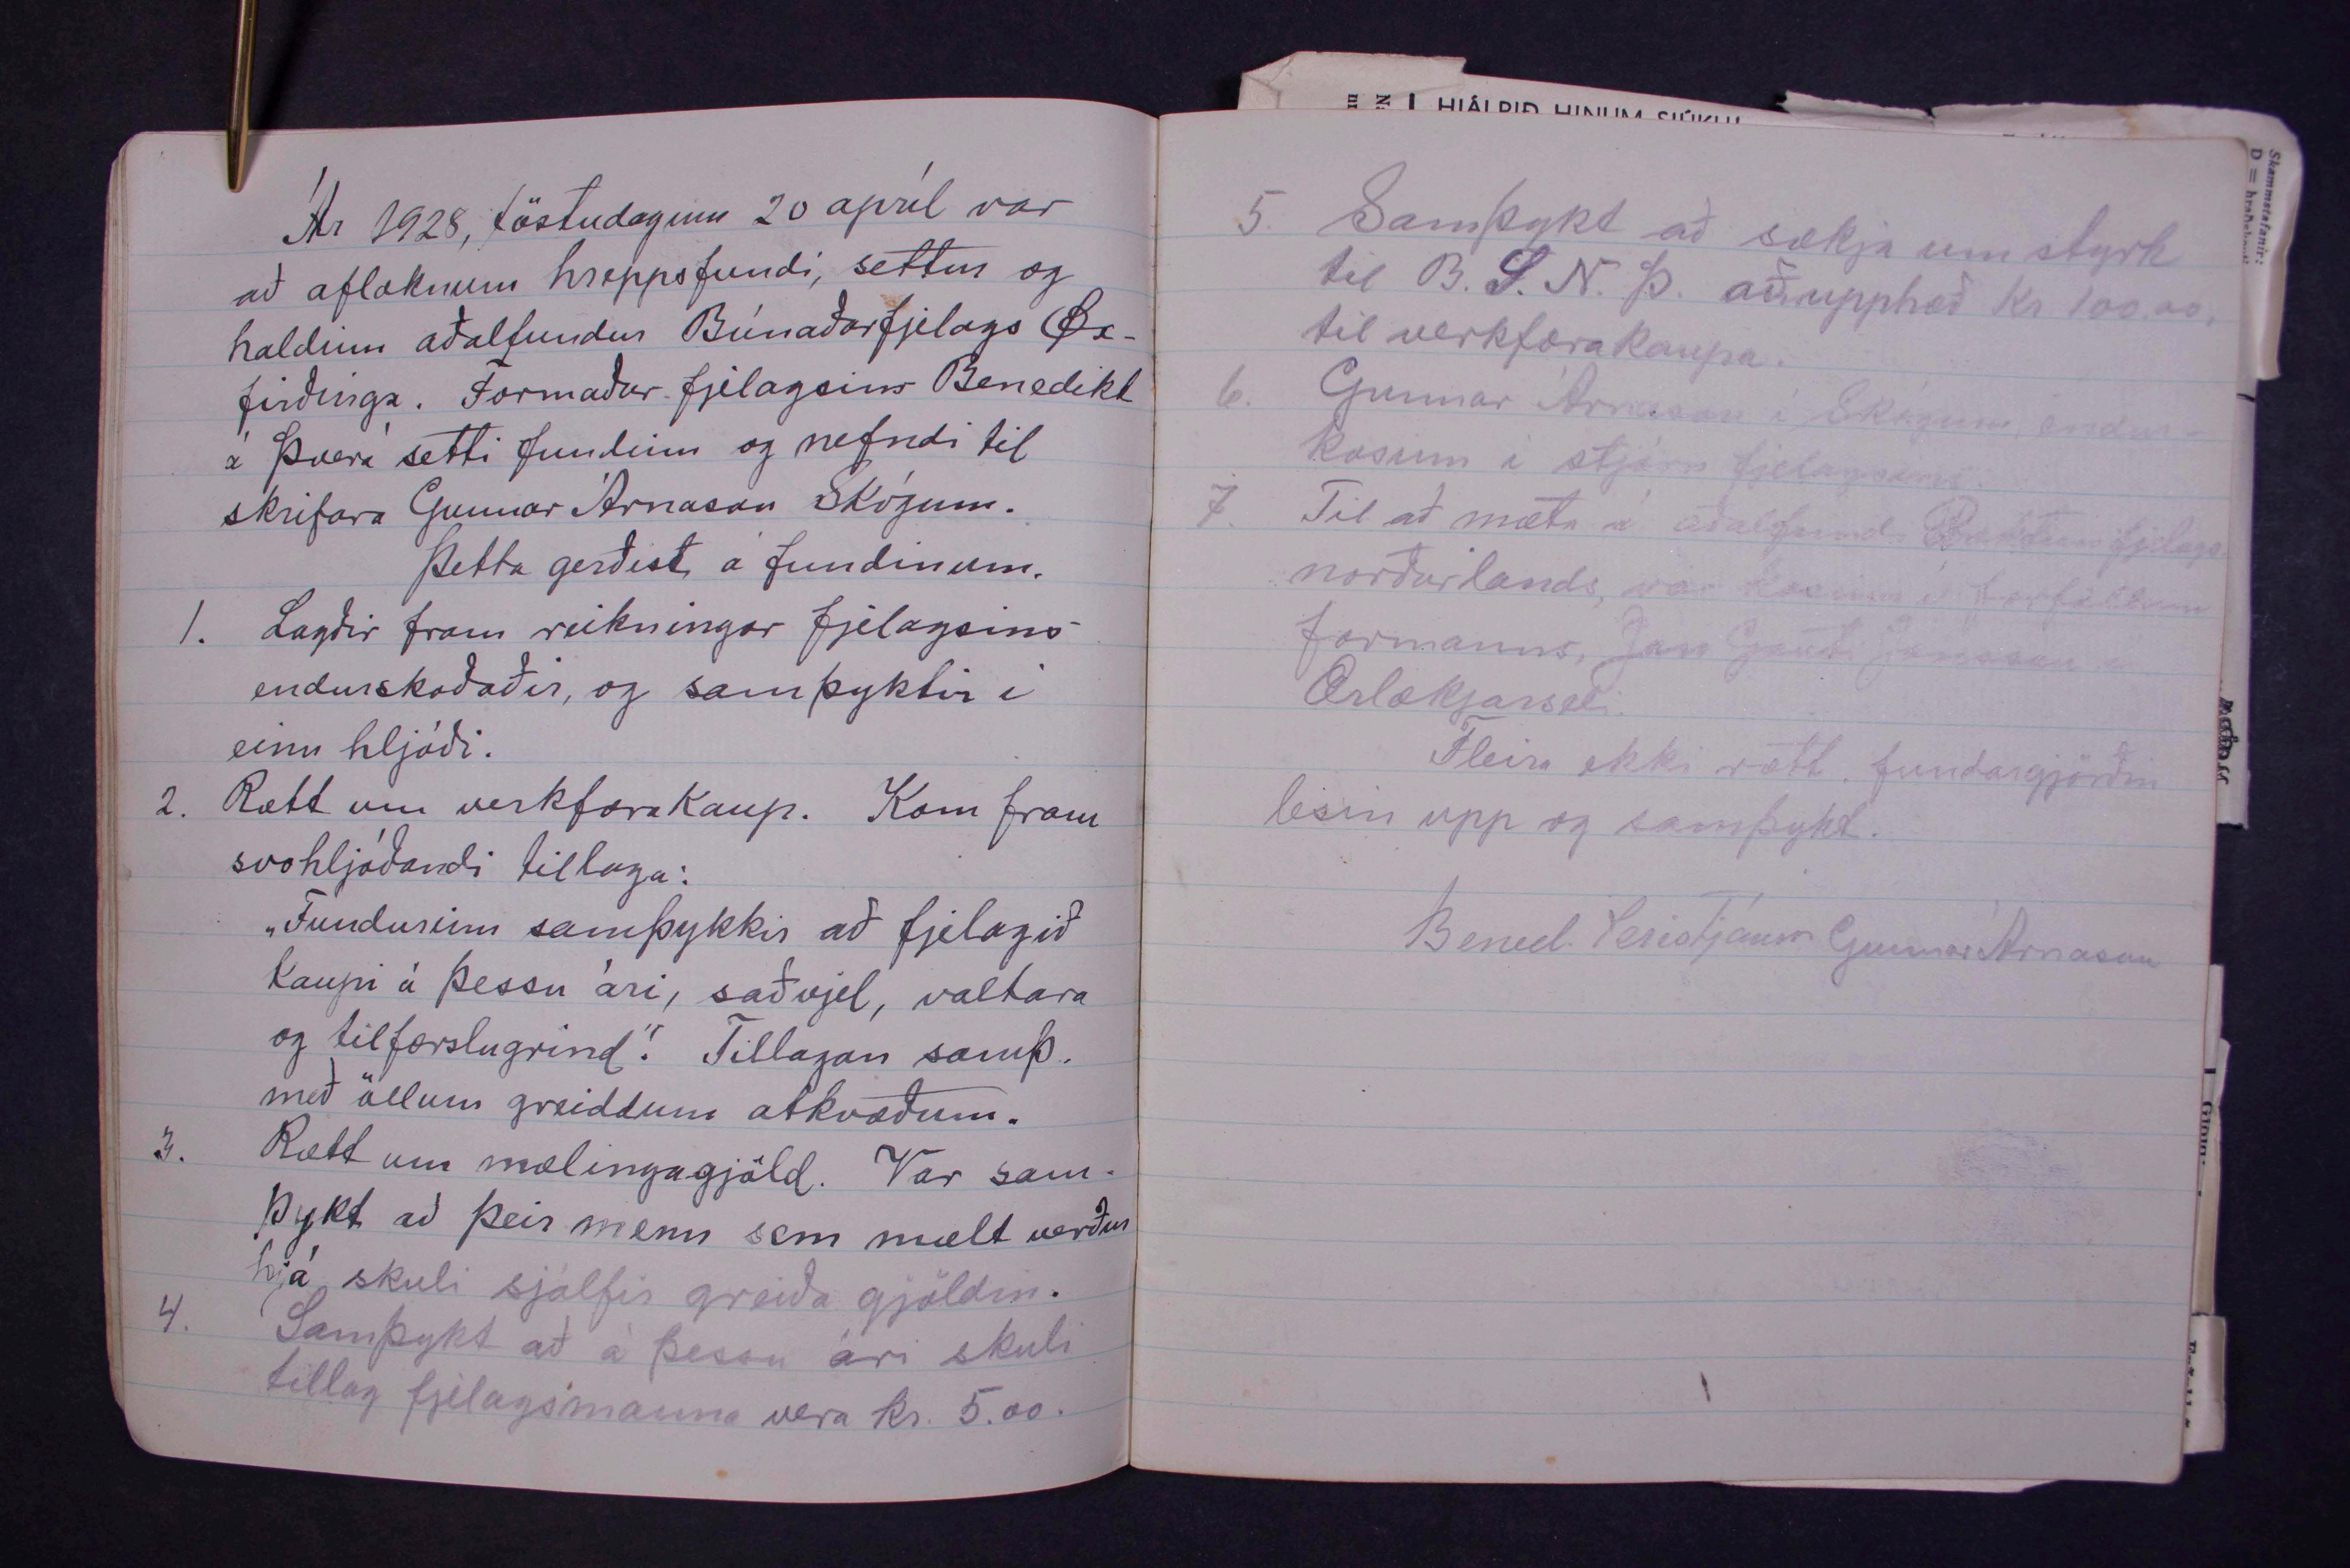 Ár 1928, föstudaginn 20 apríl var
að afloknum hreppsfundi, settur og
haldinn aðalfundur Búnaðarfjelags Øx-
firðinga. Formaður fjelagsins Benedikt
á Þverá setti fundinn og nefndi til
skrifara Gunnar Árnason Skógum.
Þetta gerðist á fundinum.
1. Lagðir fram reikningar fjelagsins
endurskoðaðir, og samþyktir í
einu hljóði.
2. Rætt um verkfærakaup. Kom fram
svohljóðandi tillaga:
„Fundurinn samþykkir að fjelagið
kaupi á þessu ári, saðvjel, valtara
og tilfærslugrind". Tillagan samþ.
með öllum greiddum atkvæðum.
3. Rætt um mælingagjöld. Var sam-
þykt að þeir menn sem mælt verður
hjá skuli sjálfir greiða gjöldin.
4. Samþykt að á þessu ári skuli
tillag fjelagsmanna vera kr. 5.00.
HJÁLPIÐ HINUM SJÚKU!
Skammstafanir:
5. Samþykt að sækja um styrk
til B. S. N. Þ. að upphæð kr 100.00,
til verkfærakaupa.
6. Gunnar Árnason í Skógum endur-
kosinn í stjórn fjelagsins.
7. Til að mæta á aðalfundi Ræktunarfjelags
norðurlands, var kosinn í forföllum
formanns, Jón Gauti Jónsson á
Ærlækjarseli.
Fleira ekki rætt. fundargjörðin
lesin upp og samþykt.
Bened. Kristjánsson Gunnar Árnason